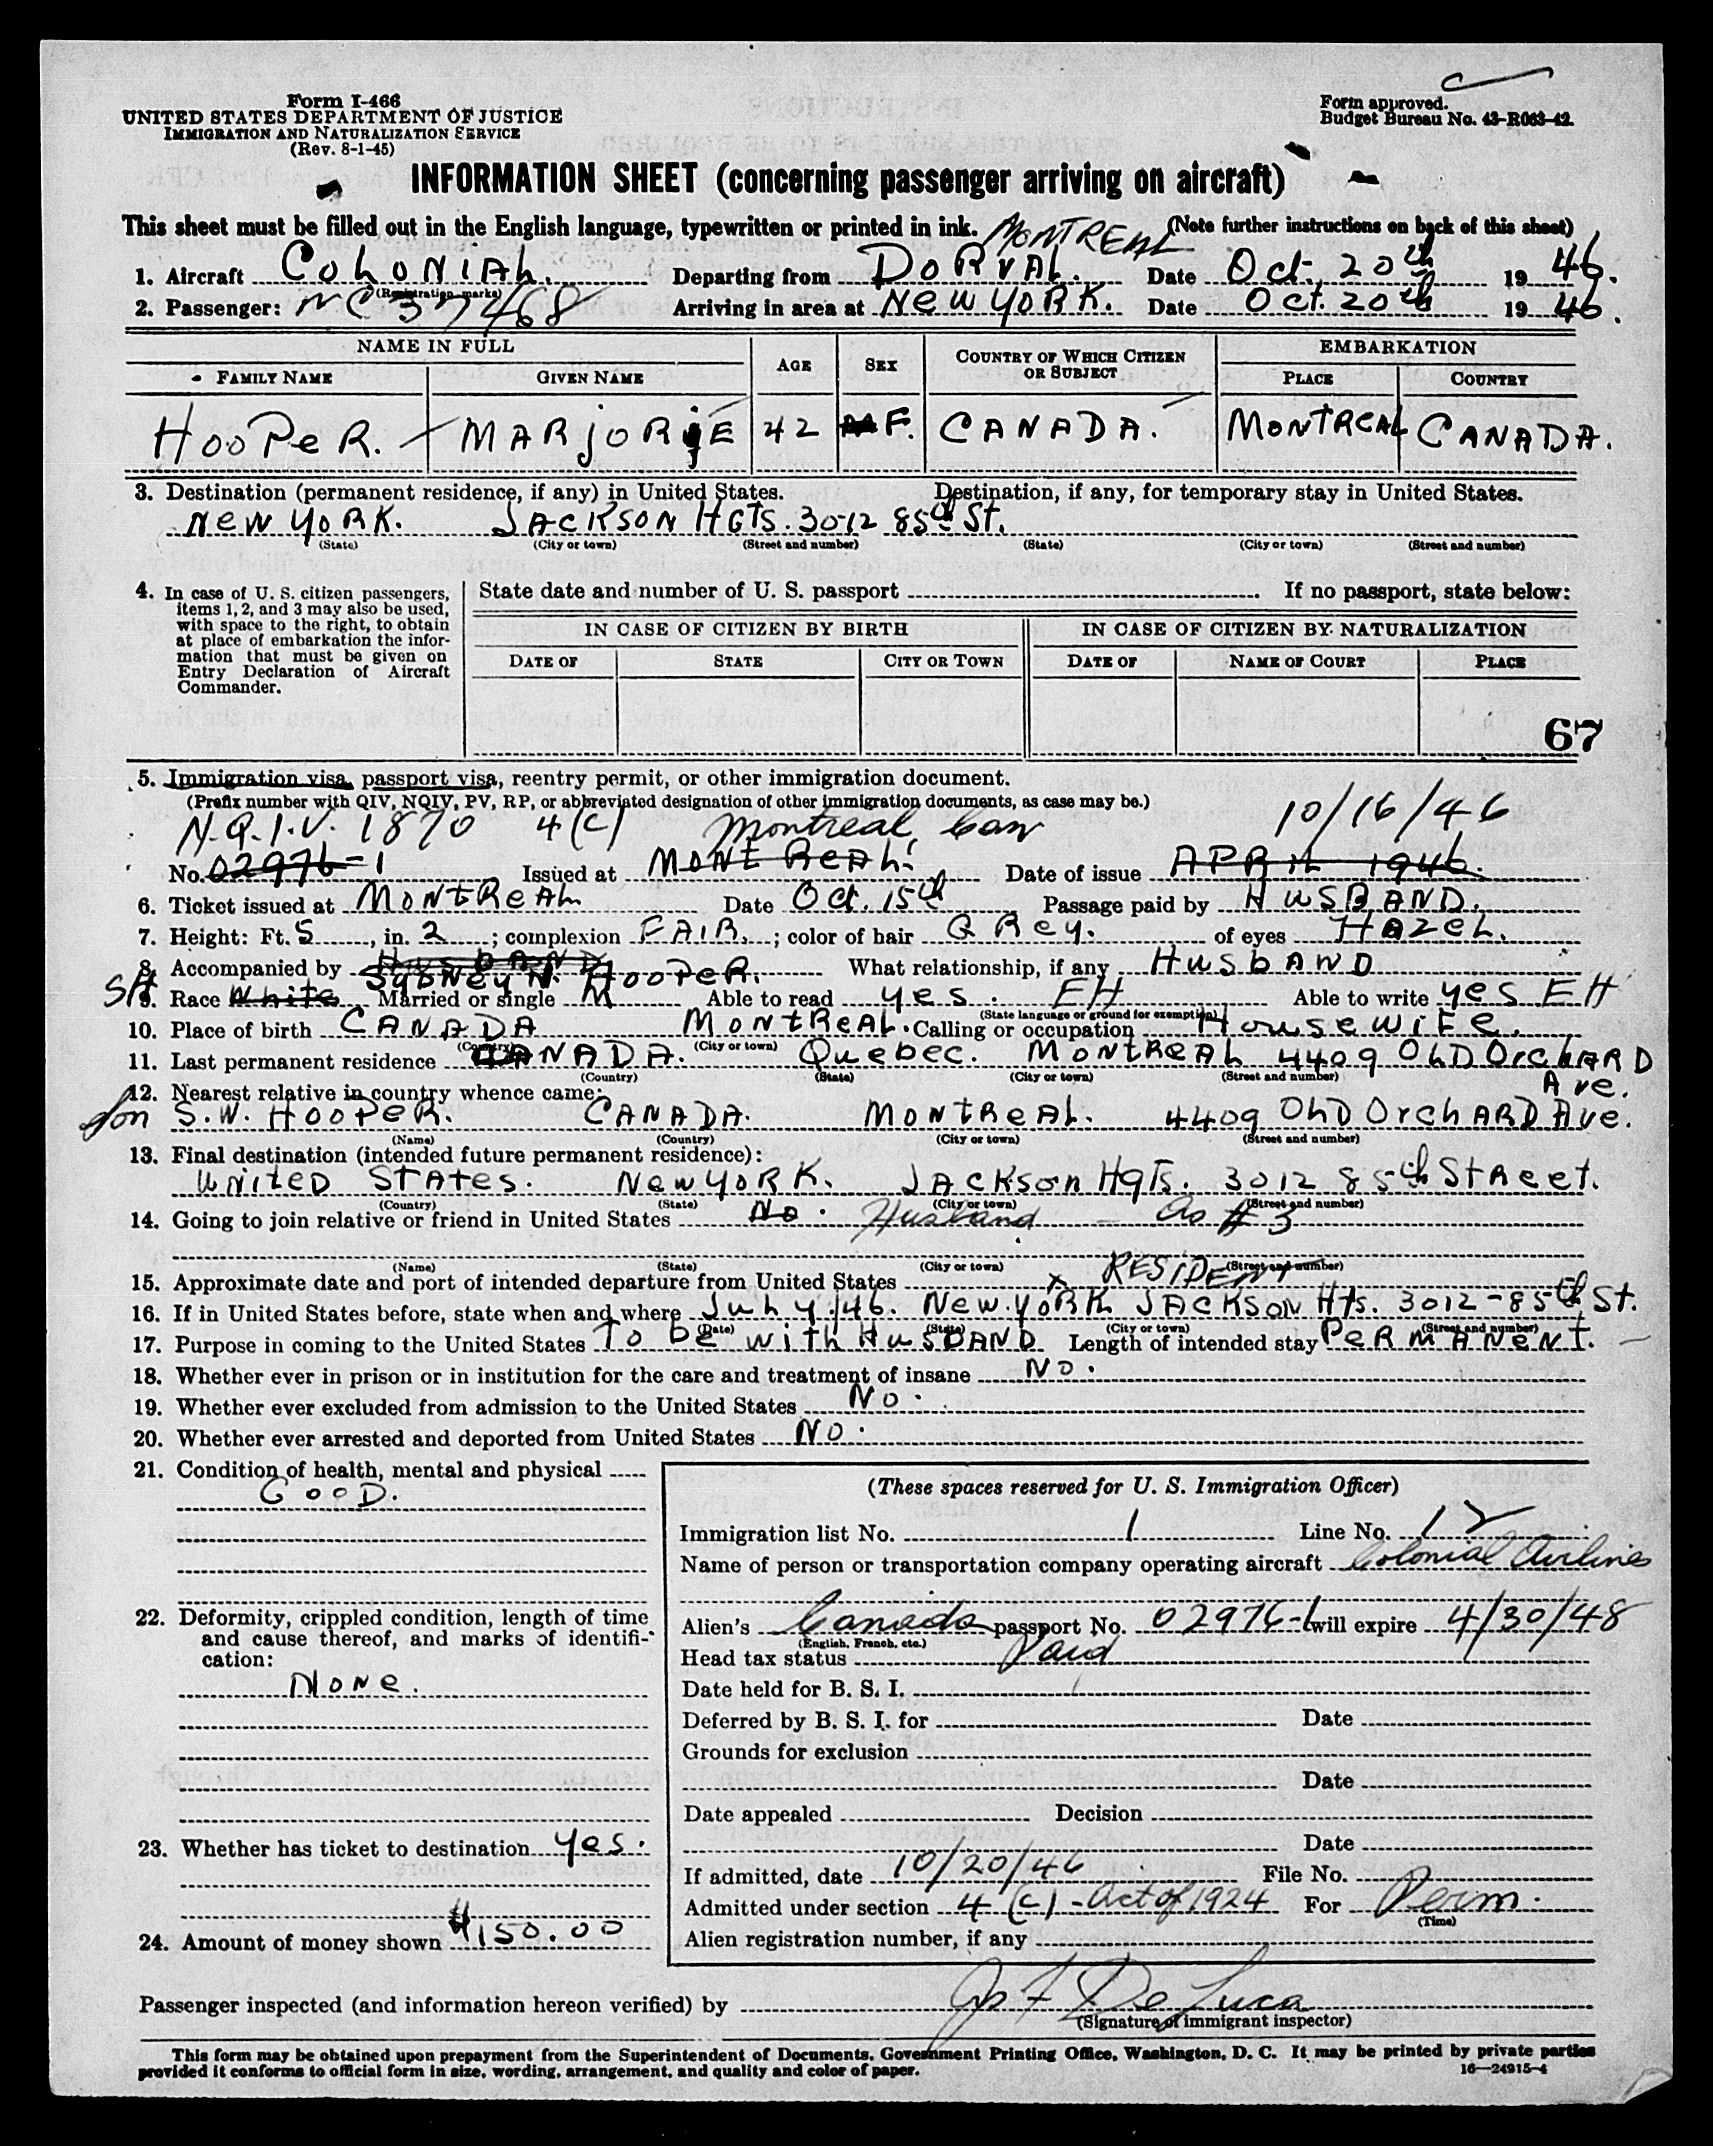 Form I-466
UNITED STATES DEPARTMENT OF JUSTICE
IMMIGRATION AND NATURALIZATION SERVICE
(Rev. 8-1-45)
Form approved.
Budget Bureau No. 43-R063-42.
INFORMATION SHEET (concerning passenger arriving on aircraft)
This sheet must be filled out in the English language, typewritten or printed in ink. (Note further instructions on back of this sheet)
MONTREAL
1. Aircraft COLONIAL. Departing from DORVAL. Date Oct. 20th 1946.
(Registration marks)
2. Passenger: NC 37468 Arriving in area at NEW YORK. Date Oct. 20th 1946.
NAME IN FULL AGE SEX COUNTRY OF WHICH CITIZEN OR SUBJECT EMBARKATION
FAMILY NAME GIVEN NAME PLACE COUNTRY
HOOPER. MARJORIE 42 F. CANADA. MONTREAL CANADA.
3. Destination (permanent residence, if any) in United States. Destination, if any, for temporary stay in United States.
NEW YORK. JACKSON HGTS. 30-12 85th St.
(State) (City or town) (Street and number) (State) (City or town) (Street and number)
4. In case of U. S. citizen passengers, items 1, 2, and 3 may also be used, with space to the right, to obtain at place of embarkation the information that must be given on Entry Declaration of Aircraft Commander.
State date and number of U. S. passport If no passport, state below:
IN CASE OF CITIZEN BY BIRTH IN CASE OF CITIZEN BY NATURALIZATION
DATE OF STATE CITY OR TOWN DATE OF NAME OF COURT PLACE
67
5. Immigration visa, passport visa, reentry permit, or other immigration document.
(Prefix number with QIV, NQIV, PV, RP, or abbreviated designation of other immigration documents, as case may be.)
N.Q.I.V. 1870 4(c) Montreal Can 10/16/46
No. 02976-1 Issued at MONTREAL. Date of issue APRIL 1946.
6. Ticket issued at MONTREAL Date Oct. 15th Passage paid by HUSBAND.
7. Height: Ft. 5, in. 2; complexion FAIR.; color of hair GREY. of eyes HAZEL.
HUSBAND
8. Accompanied by SYDNEY N. HOOPER. What relationship, if any HUSBAND
9. Race White Married or single M Able to read yes. EH Able to write yes EH
(State language or ground for exemption)
10. Place of birth CANADA MONTREAL. Calling or occupation HOUSEWIFE.
(Country) (City or town)
11. Last permanent residence CANADA. QUEBEC. MONTREAL 4409 OLD ORCHARD Ave.
(Country) (State) (City or town) (Street and number)
12. Nearest relative in country whence came:
Son S.W. HOOPER. CANADA. MONTREAL. 4409 OLD ORCHARD Ave.
(Name) (Country) (City or town) (Street and number)
13. Final destination (intended future permanent residence):
UNITED STATES. NEW YORK. JACKSON HGTS. 3012 85th STREET.
(Country) (State) (City or town) (Street and number)
14. Going to join relative or friend in United States No. Husband - As #3
(Name) (State) (City or town) (Street and number)
15. Approximate date and port of intended departure from United States x RESIDENT
16. If in United States before, state when and where July/46. NEW YORK JACKSON Hts. 3012-85th St.
(Date) (State) (City or town) (Street and number)
17. Purpose in coming to the United States To BE WITH HUSBAND Length of intended stay PERMANENT.
18. Whether ever in prison or in institution for the care and treatment of insane NO.
19. Whether ever excluded from admission to the United States NO.
20. Whether ever arrested and deported from United States NO.
21. Condition of health, mental and physical
GOOD.
22. Deformity, crippled condition, length of time and cause thereof, and marks of identification:
NONE.
23. Whether has ticket to destination yes.
24. Amount of money shown $150.00
(These spaces reserved for U. S. Immigration Officer)
Immigration list No. 1 Line No. 12
Name of person or transportation company operating aircraft Colonial Airlines
Alien's Canada passport No. 02976-1 will expire 4/30/48
(English, French, etc.)
Head tax status Paid
Date held for B. S. I.
Deferred by B. S. I. for Date
Grounds for exclusion
Date
Date appealed Decision
Date
If admitted, date 10/20/46 File No.
Admitted under section 4 (c) - Act of 1924 For Perm.
(Time)
Alien registration number, if any
Passenger inspected (and information hereon verified) by Jos F De Luca
(Signature of immigrant inspector)
This form may be obtained upon prepayment from the Superintendent of Documents, Government Printing Office, Washington, D. C. It may be printed by private parties
provided it conforms to official form in size, wording, arrangement, and quality and color of paper.
16—24915-4